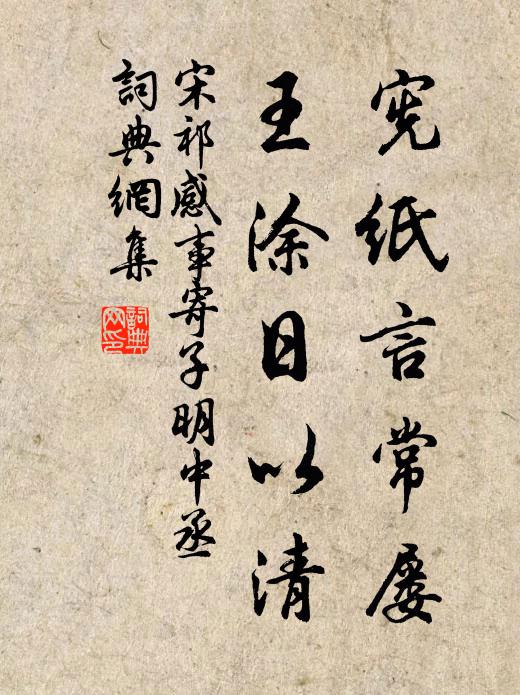 宪纸言常屡
王涂日以清
宋祁感事寄子明中丞
詞典網集
詞典网印